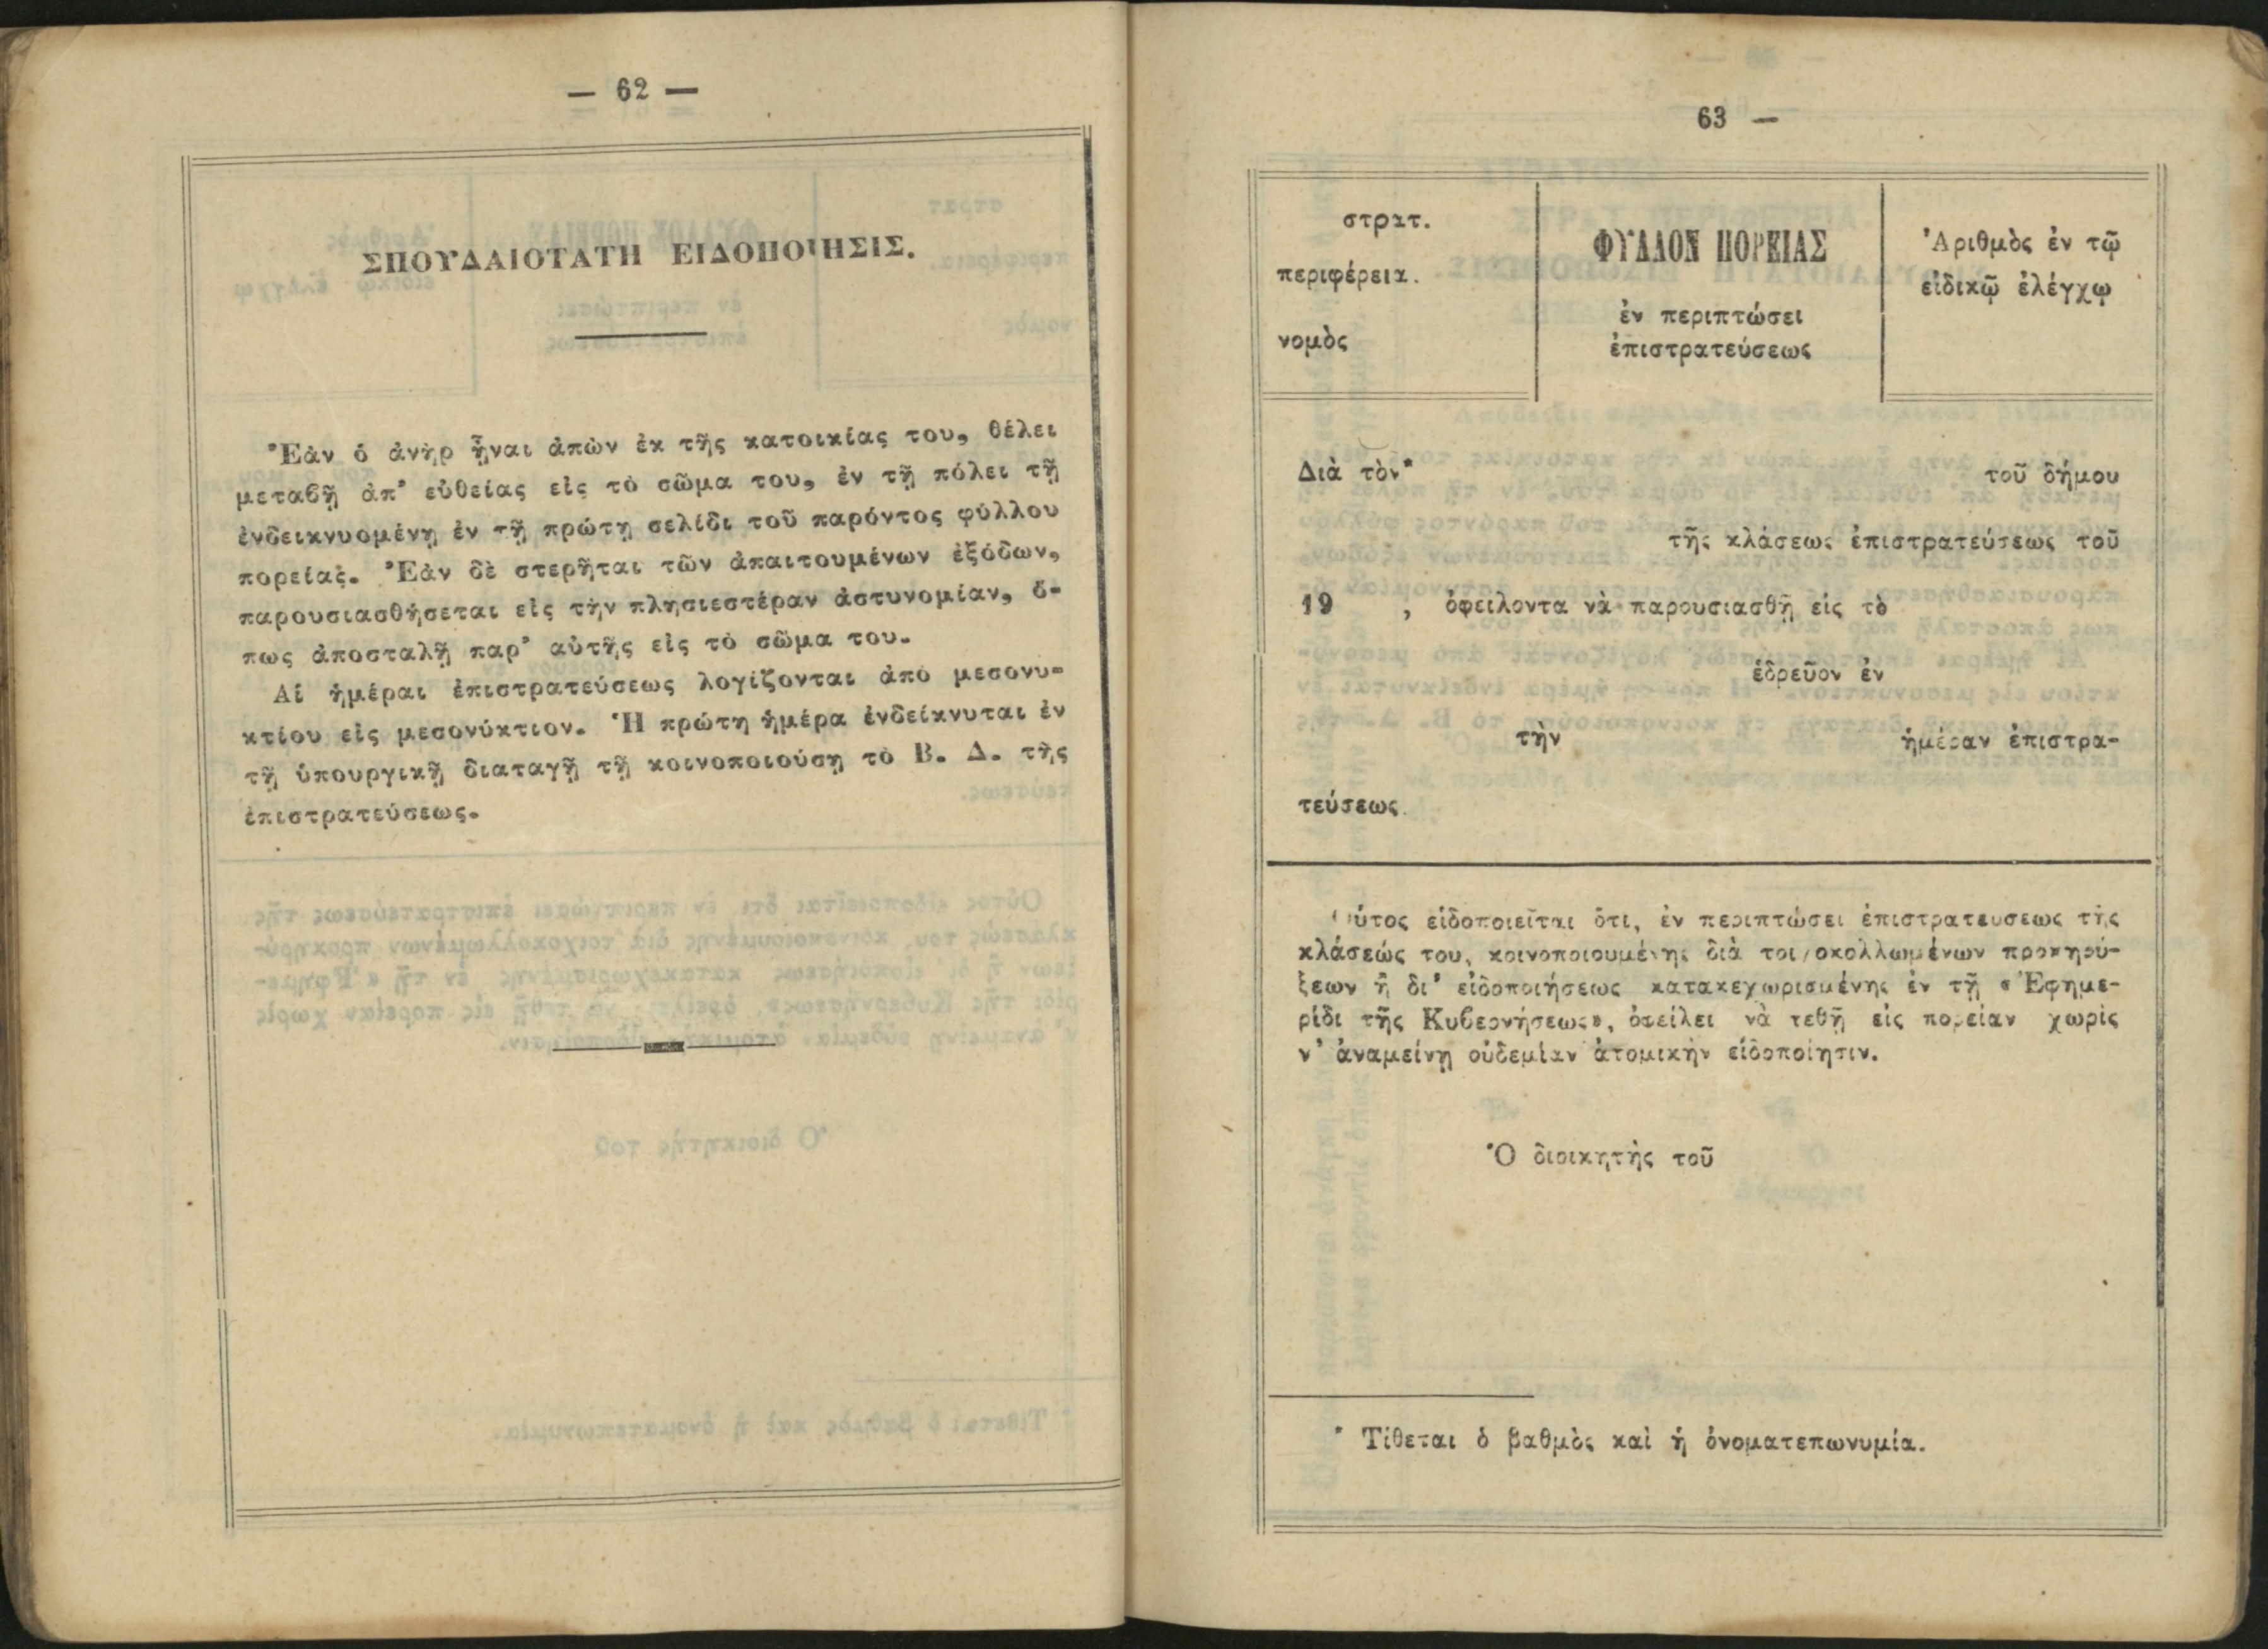 — 62 —
ΣΠΟΥΔΑΙΟΤΑΤΗ ΕΙΔΟΠΟΙΗΣΙΣ.
Ἐὰν ὁ ἀνὴρ ᾖναι ἀπὼν ἐκ τῆς κατοικίας του, θέλει
μεταβῇ ἀπ' εὐθείας εἰς τὸ σῶμα του, ἐν τῇ πόλει τῇ
ἐνδεικνυομένῃ ἐν τῇ πρώτῃ σελίδι τοῦ παρόντος φύλλου
πορείας. Ἐὰν δὲ στερῆται τῶν ἀπαιτουμένων ἐξόδων,
παρουσιασθήσεται εἰς τὴν πλησιεστέραν ἀστυνομίαν, ὅ-
πως ἀποσταλῇ παρ' αὐτῆς εἰς τὸ σῶμα του.
Αἱ ἡμέραι ἐπιστρατεύσεως λογίζονται ἀπὸ μεσονυ-
κτίου εἰς μεσονύκτιον. Ἡ πρώτη ἡμέρα ἐνδείκνυται ἐν
τῇ ὑπουργικῇ διαταγῇ τῇ κοινοποιούσῃ τὸ Β. Δ. τῆς
ἐπιστρατεύσεως.
63 —
στρατ.
περιφέρεια.
νομὸς
ΦΥΛΛΟΝ ΠΟΡΕΙΑΣ
ἐν περιπτώσει
ἐπιστρατεύσεως
Ἀριθμὸς ἐν τῷ
εἰδικῷ ἐλέγχῳ
Διὰ τὸν* τοῦ δήμου
τῆς κλάσεως ἐπιστρατεύσεως τοῦ
19 , ὀφείλοντα νὰ παρουσιασθῇ εἰς τὸ
ἑδρεῦον ἐν
τὴν ἡμέραν ἐπιστρα-
τεύσεως.
Οὗτος εἰδοποιεῖται ὅτι, ἐν περιπτώσει ἐπιστρατεύσεως τῆς
κλάσεώς του, κοινοποιουμένης διὰ τοιχοκολλωμένων προκηρύ-
ξεων ἢ δι' εἰδοποιήσεως κατακεχωρισμένης ἐν τῇ «Ἐφημε-
ρίδι τῆς Κυβερνήσεως», ὀφείλει νὰ τεθῇ εἰς πορείαν χωρὶς
ν' ἀναμείνῃ οὐδεμίαν ἀτομικὴν εἰδοποίησιν.
Ὁ διοικητὴς τοῦ
* Τίθεται ὁ βαθμὸς καὶ ἡ ὀνοματεπωνυμία.